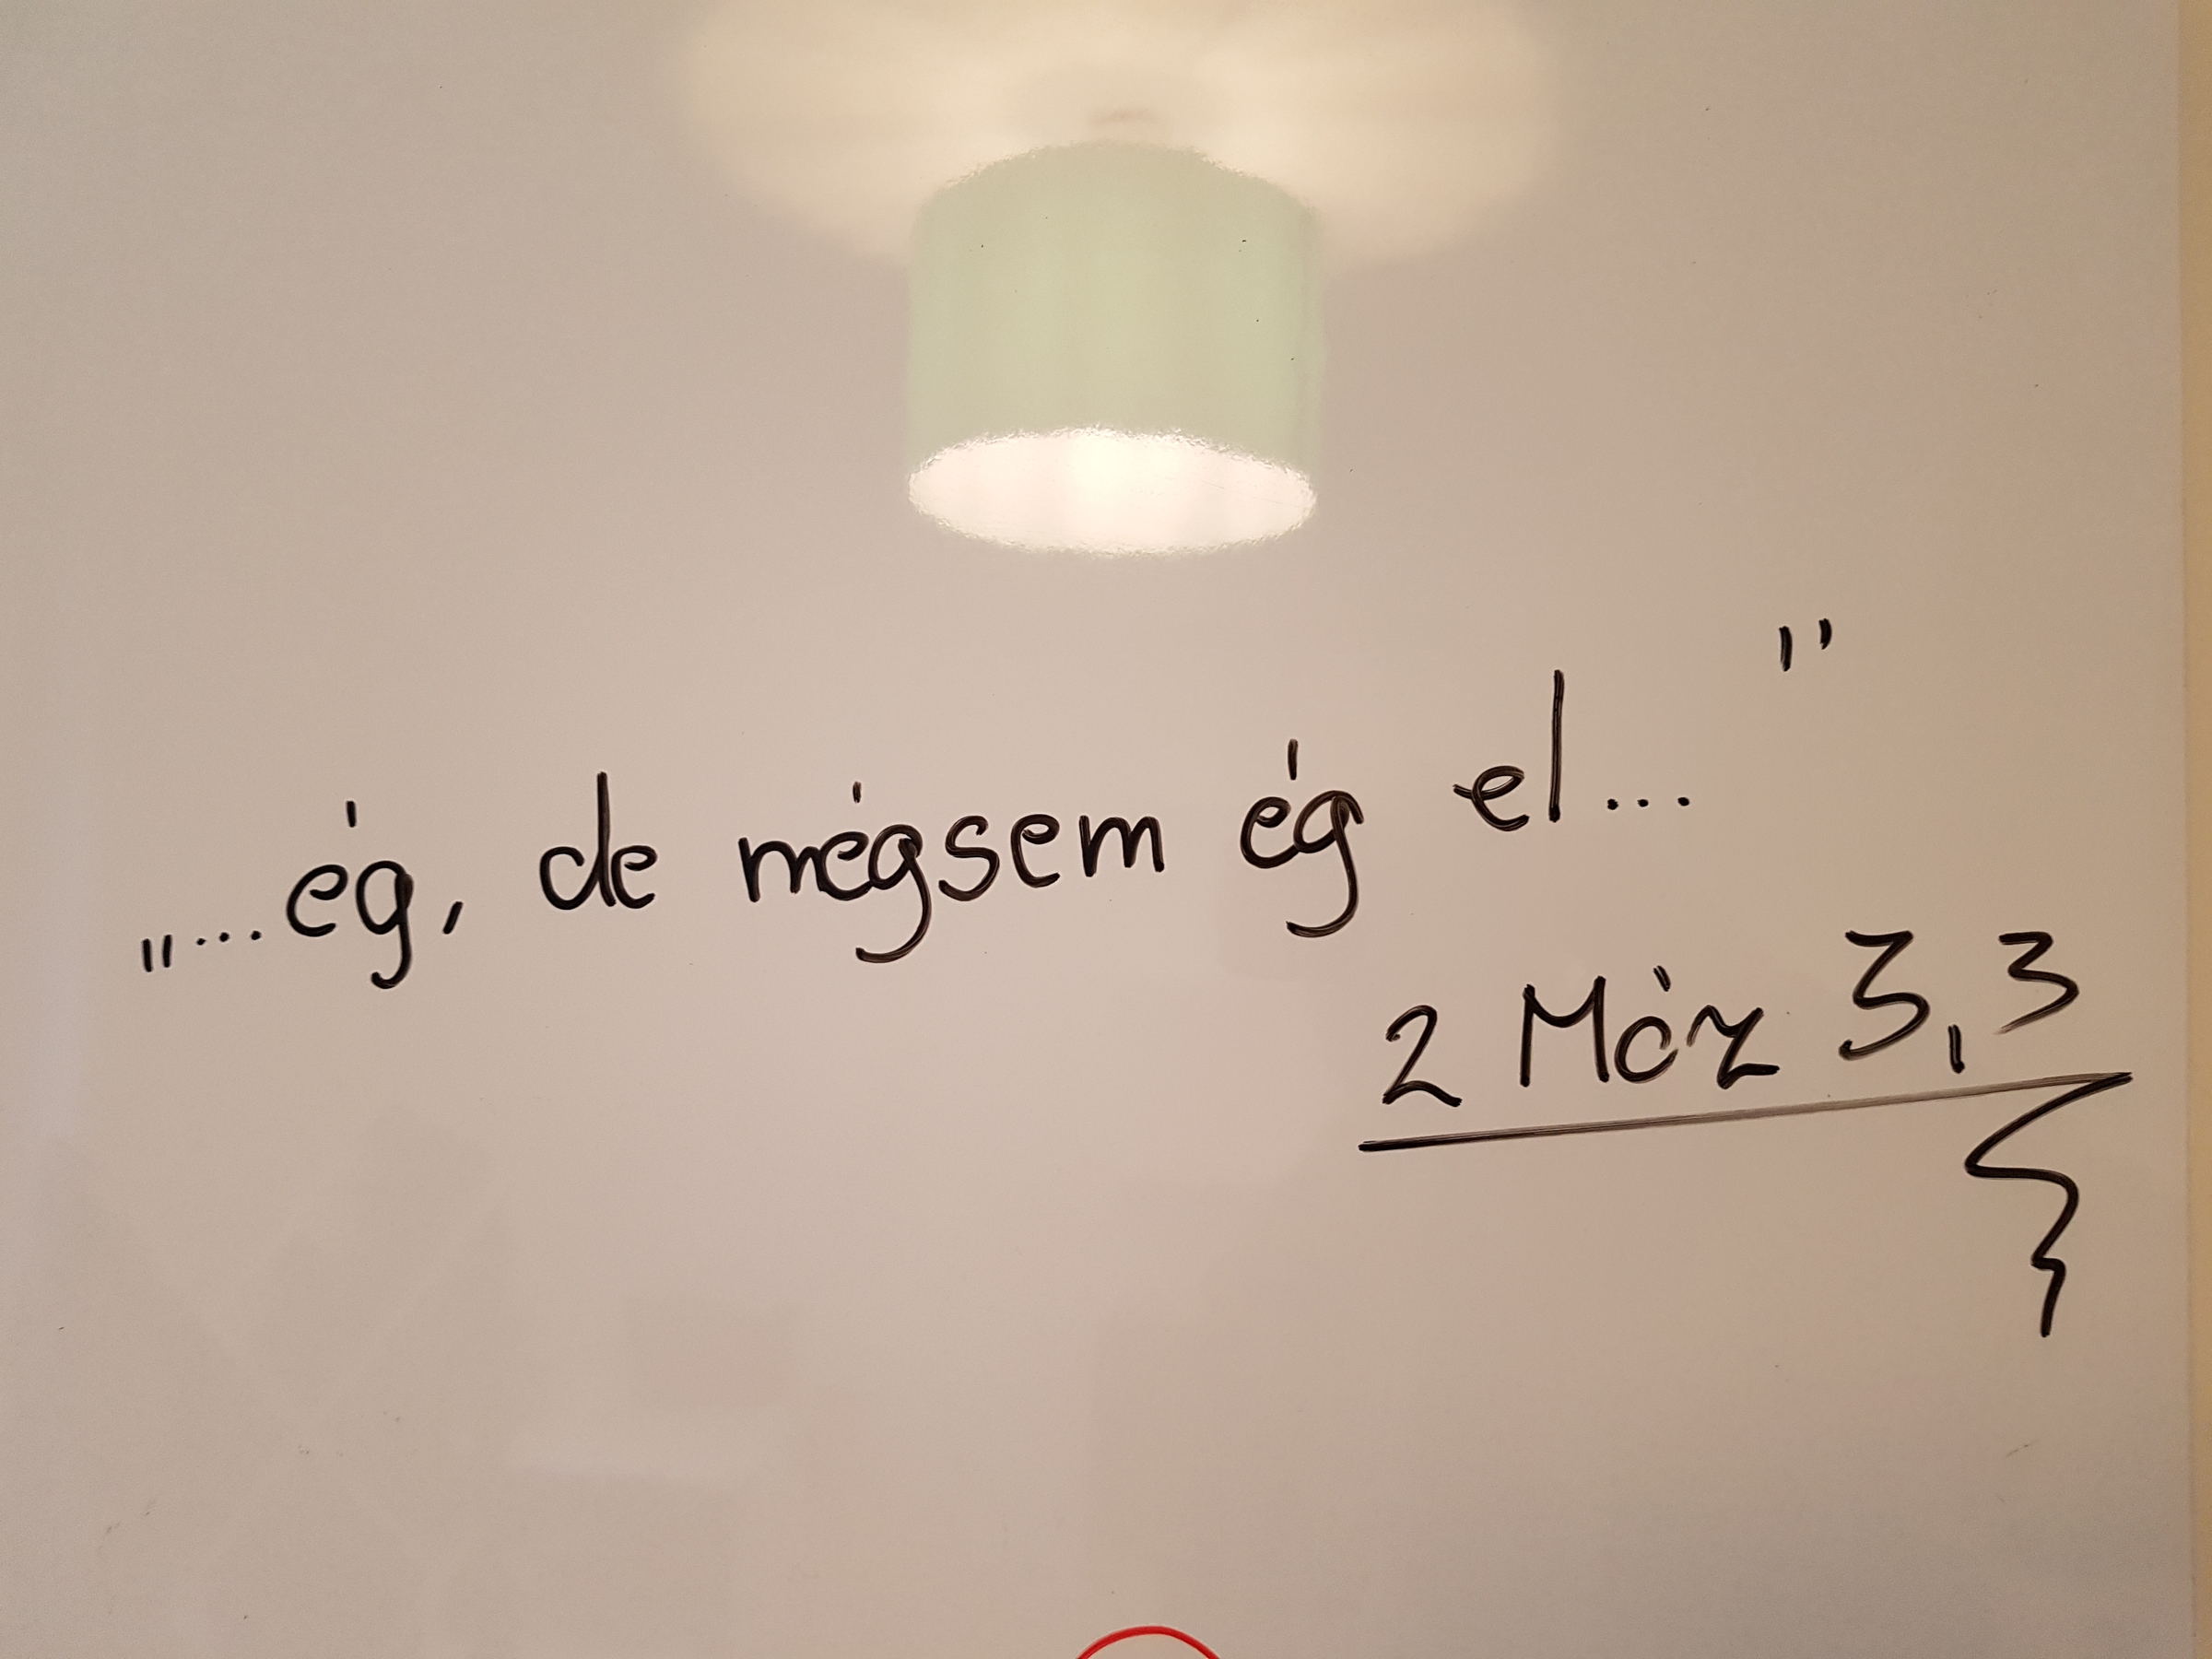 „...ég, de mégsem ég el..."
2 Móz 3,3